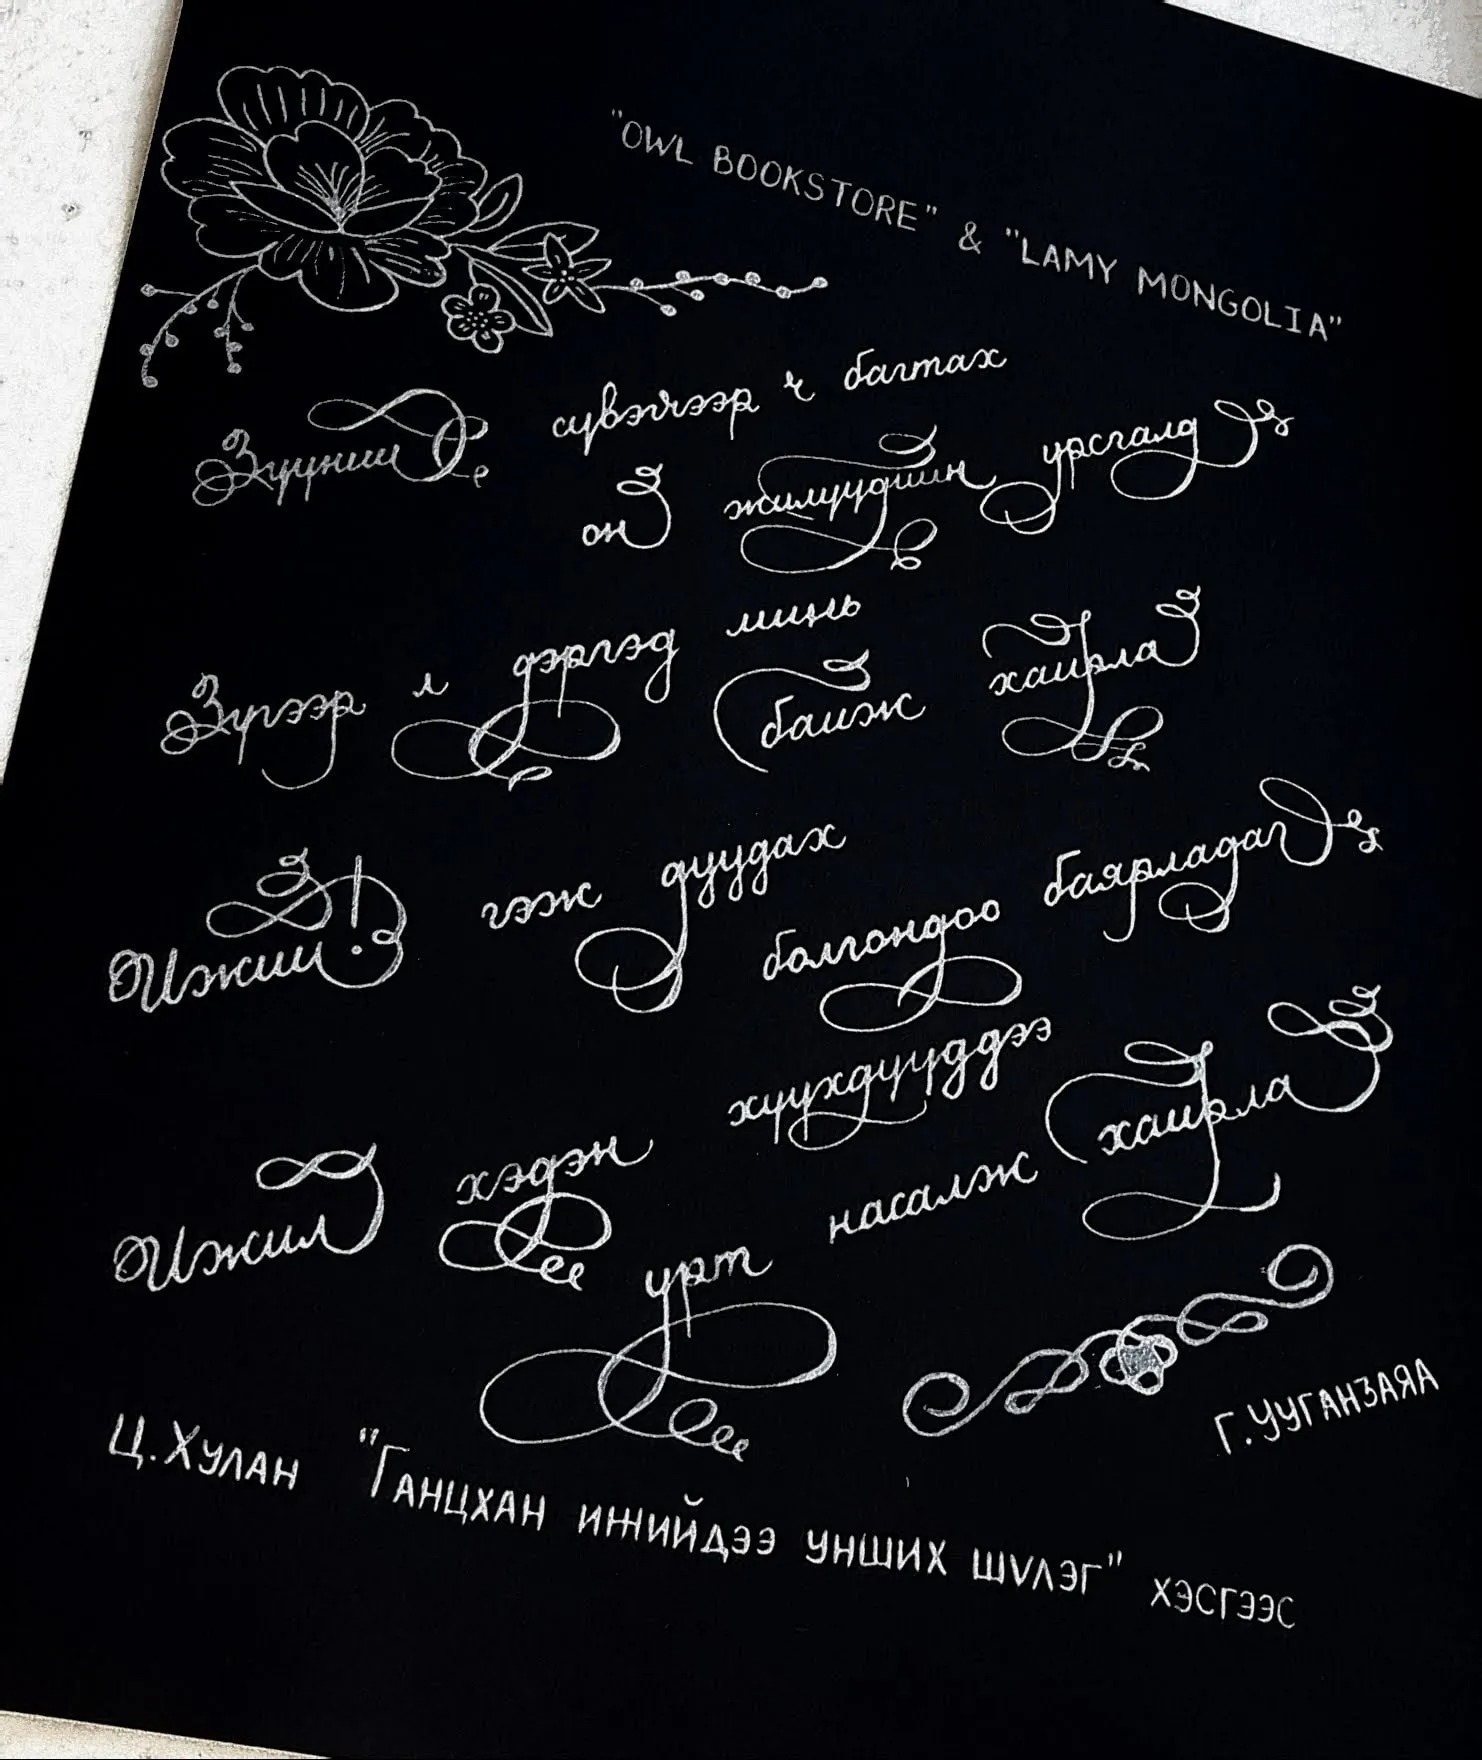 "OWL BOOKSTORE" & "LAMY MONGOLIA"
Зүүний сүвэгчээр ч багтах
он жилүүдийн урсгалд
Зүгээр л дэргэд минь
байж хайрла
Ижий! гэж дуудах
болгондоо баярладаг
Ижил хэдэн хүүхдүүддээ
урт насалж хайрла
Г. УУГАНЗАЯА
Ц. ХУЛАН "ГАНЦХАН ИЖИЙДЭЭ УНШИХ ШVЛЭГ" ХЭСГЭЭС